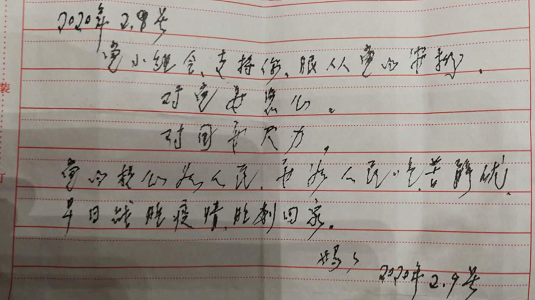 2020年2.9号
党小组会、支持你、服从党的安排。
对党要忠心。
对国要尽力。
党的核心为人民、要为人民吃苦解忧、
早日战胜疫情、胜利回家。
妈妈
2020年2.9号
装
订